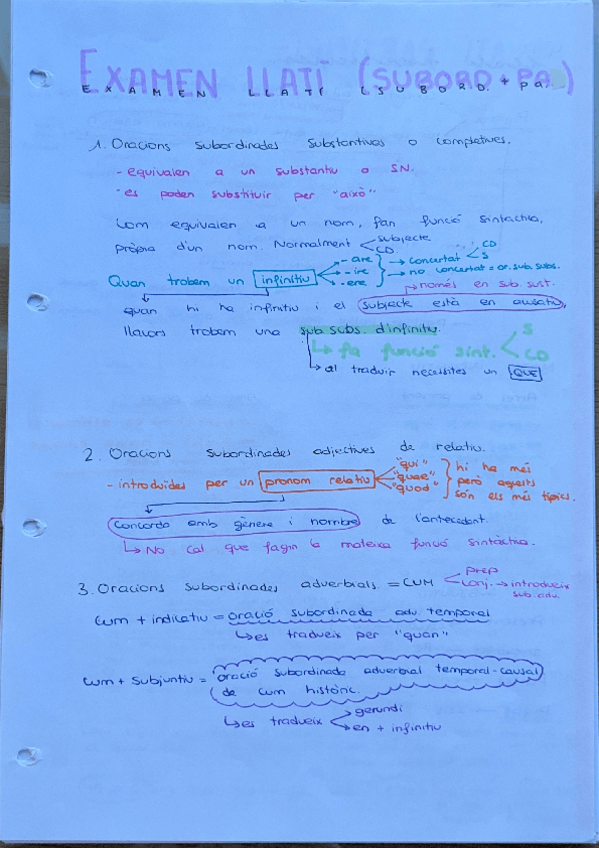 EXAMEN LLATÍ (SUBORD. + PA.)
EXAMEN LLATI (SUBORD. + PA.
1. Oracions subordinades substantives o completives.
- equivalen a un substantiu o SN.
- es poden substituir per "això"
Com equivalen a un nom, fan funció sintàctica,
pròpia d'un nom. Normalment < subjecte
CD
Quan trobem un infinitiu
- are
- ire
- ere
→ concertat < CD
S
→ no concertat = or. sub. subs.
→ només en sub. sust.
quan hi ha infinitiu i el subjecte està en acusatiu,
llavors trobem una sub. subs. d'infinitiu.
↳ fa funció sint. < S
CD
↳ al traduir necessites un QUE
2. Oracions subordinades adjectives de relatiu.
- introduïdes per un pronom relatiu
"qui"
"quae"
"quod"
hi ha més
però aquests
són els més típics.
Concorda amb gènere i nombre de l'antecedent.
↳ No cal que fagin la mateixa funció sintàctica.
3. Oracions subordinades adverbials. = CUM < prep
conj. → introdueix
sub. adv.
cum + indicatiu = oració subordinada adv temporal
↳ es tradueix per "quan"
cum + subjuntiu = oració subordinada adverbial temporal-causal
de cum històric.
↳ es tradueix < gerundi
en + infinitiu